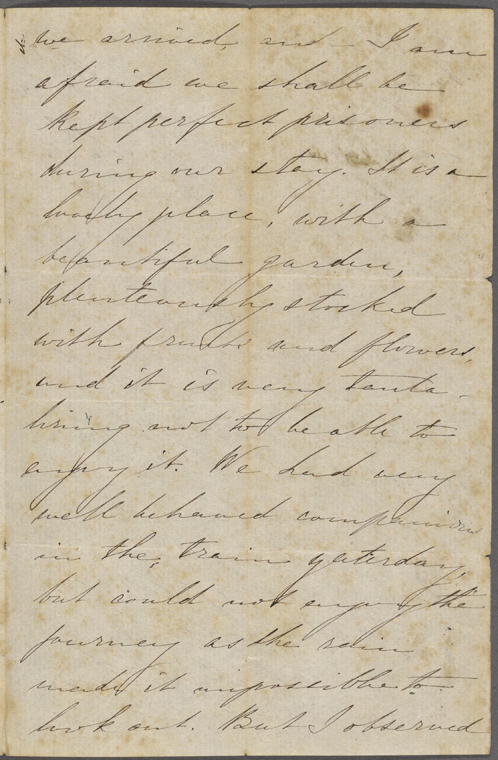 we arrived, and I am
afraid we shall be
kept perfect prisoners
during our stay. It is a
lovely place, with a
beautiful garden,
plenteously stocked
with fruits and flowers,
and it is very tanta-
lising not to be able to
enjoy it. We had very
well behaved companions
in the train yesterday,
but could not enjoy the
journey as the rain
made it impossible to
look out. But I observed